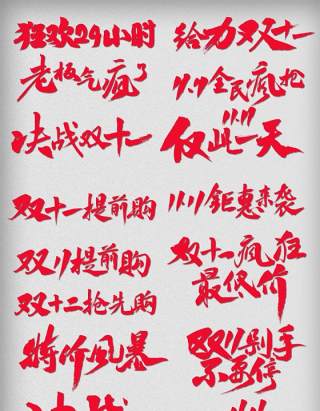 狂欢24小时
给力双十一
老板气疯了
11.11全民疯抢
决战双十一
11.11
仅此一天
双十一提前购
11.11钜惠来袭
双11提前购
双十一疯狂
最低价
双十二抢先购
特价风暴
双11剁手
不要停